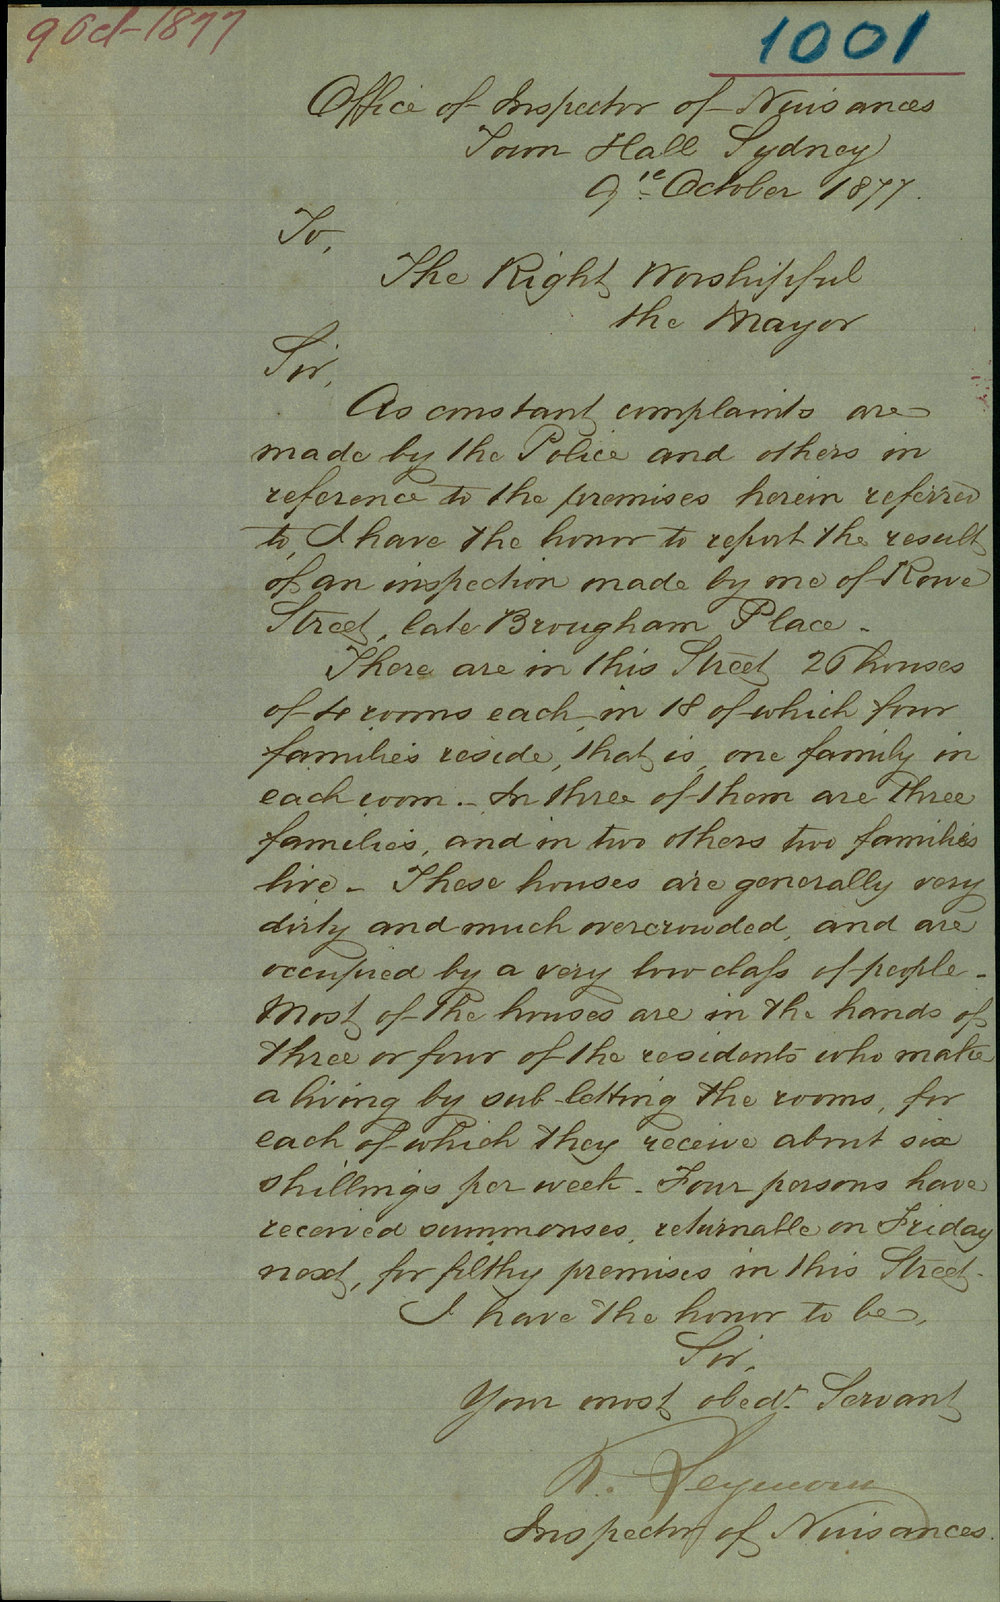 9 Oct 1877
1001
Office of Inspector of Nuisances
Town Hall Sydney
9th October 1877.
To,
The Right Worshipful
the Mayor
Sir,
As constant complaints are
made by the Police and others in
reference to the premises herein referred
to, I have the honor to report the result
of an inspection made by me of Rowe
Street, late Brougham Place -
There are in this Street 26 houses
of 4 rooms each, in 18 of which four
families reside, that is, one family in
each room. - In three of them are three
families, and in two others two families
live - These houses are generally very
dirty and much overcrowded, and are
occupied by a very low class of people -
Most of the houses are in the hands of
three or four of the residents who make
a living by sub-letting the rooms, for
each of which they receive about six
shillings per week - Four persons have
received summonses, returnable on Friday
next, for filthy premises in this Street -
I have the honor to be,
Sir,
Your most obedt. Servant
R. Seymour
Inspector of Nuisances.